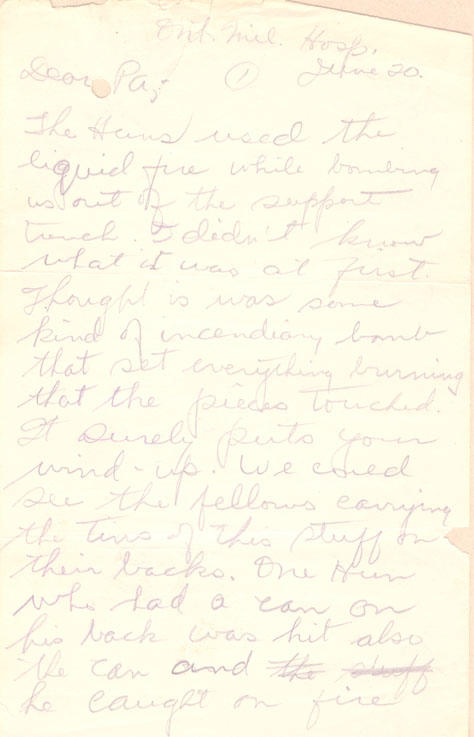 Ont. Mil. Hosp.
Dear Pa,- (1) June 20.
The Huns used the
liquid fire while bombing
us out of the support
trench. I didn't know
what it was at first.
Thought is was some
kind of incendiary bomb
that set everything burning
that the pieces touched.
It surely puts your
wind-up. We could
see the fellows carrying
the tins of this stuff on
their backs. One Hun
who had a can on
his back was hit also
the can and the stuff
he caught on fire